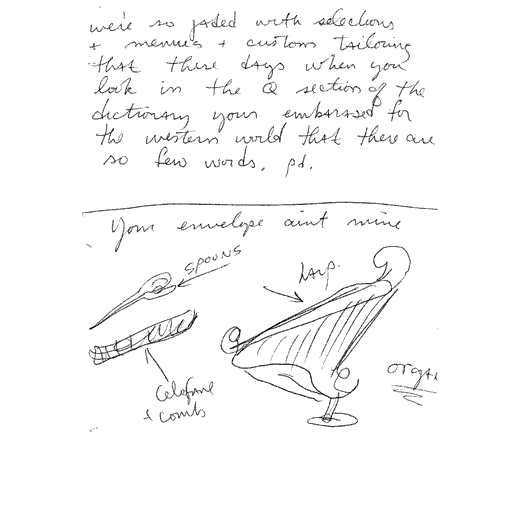 we're so jaded with selections
+ menue's + custom tailoring
that these days when you
look in the Q section of the
dictionary your embarassed for
the western world that there are
so few words. pd.
Your envelope aint mine
spoons
harp.
organ
Celofane
+ combs